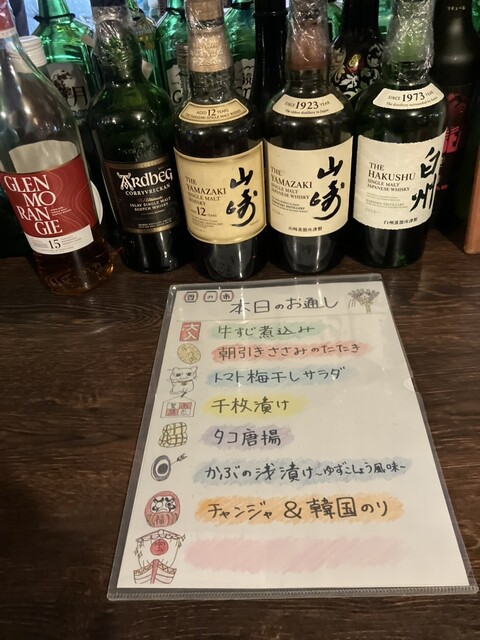 GLEN
MO
RAN
GIE
15
ARDBEG
CORRYVRECKAN
ISLAY SINGLE MALT
SCOTCH WHISKY
AGED 12 YEARS
THE
YAMAZAKI
SINGLE MALT
JAPANESE WHISKY
AGED 12 YEARS
山崎
SINCE 1923 YEAR
THE
YAMAZAKI
SINGLE MALT
JAPANESE WHISKY
山崎
山崎蒸溜所謹製
SINCE 1973 YEAR
THE
HAKUSHU
SINGLE MALT
JAPANESE WHISKY
白州
白州蒸溜所謹製
リキュール
本日のお通し
大入
牛すじ煮込み
朝引きささみのたたき
トマト梅干しサラダ
千枚漬け
タコ唐揚
かぶの浅漬け~ゆずこしょう風味~
福
チャンジャ & 韓国のり
宝